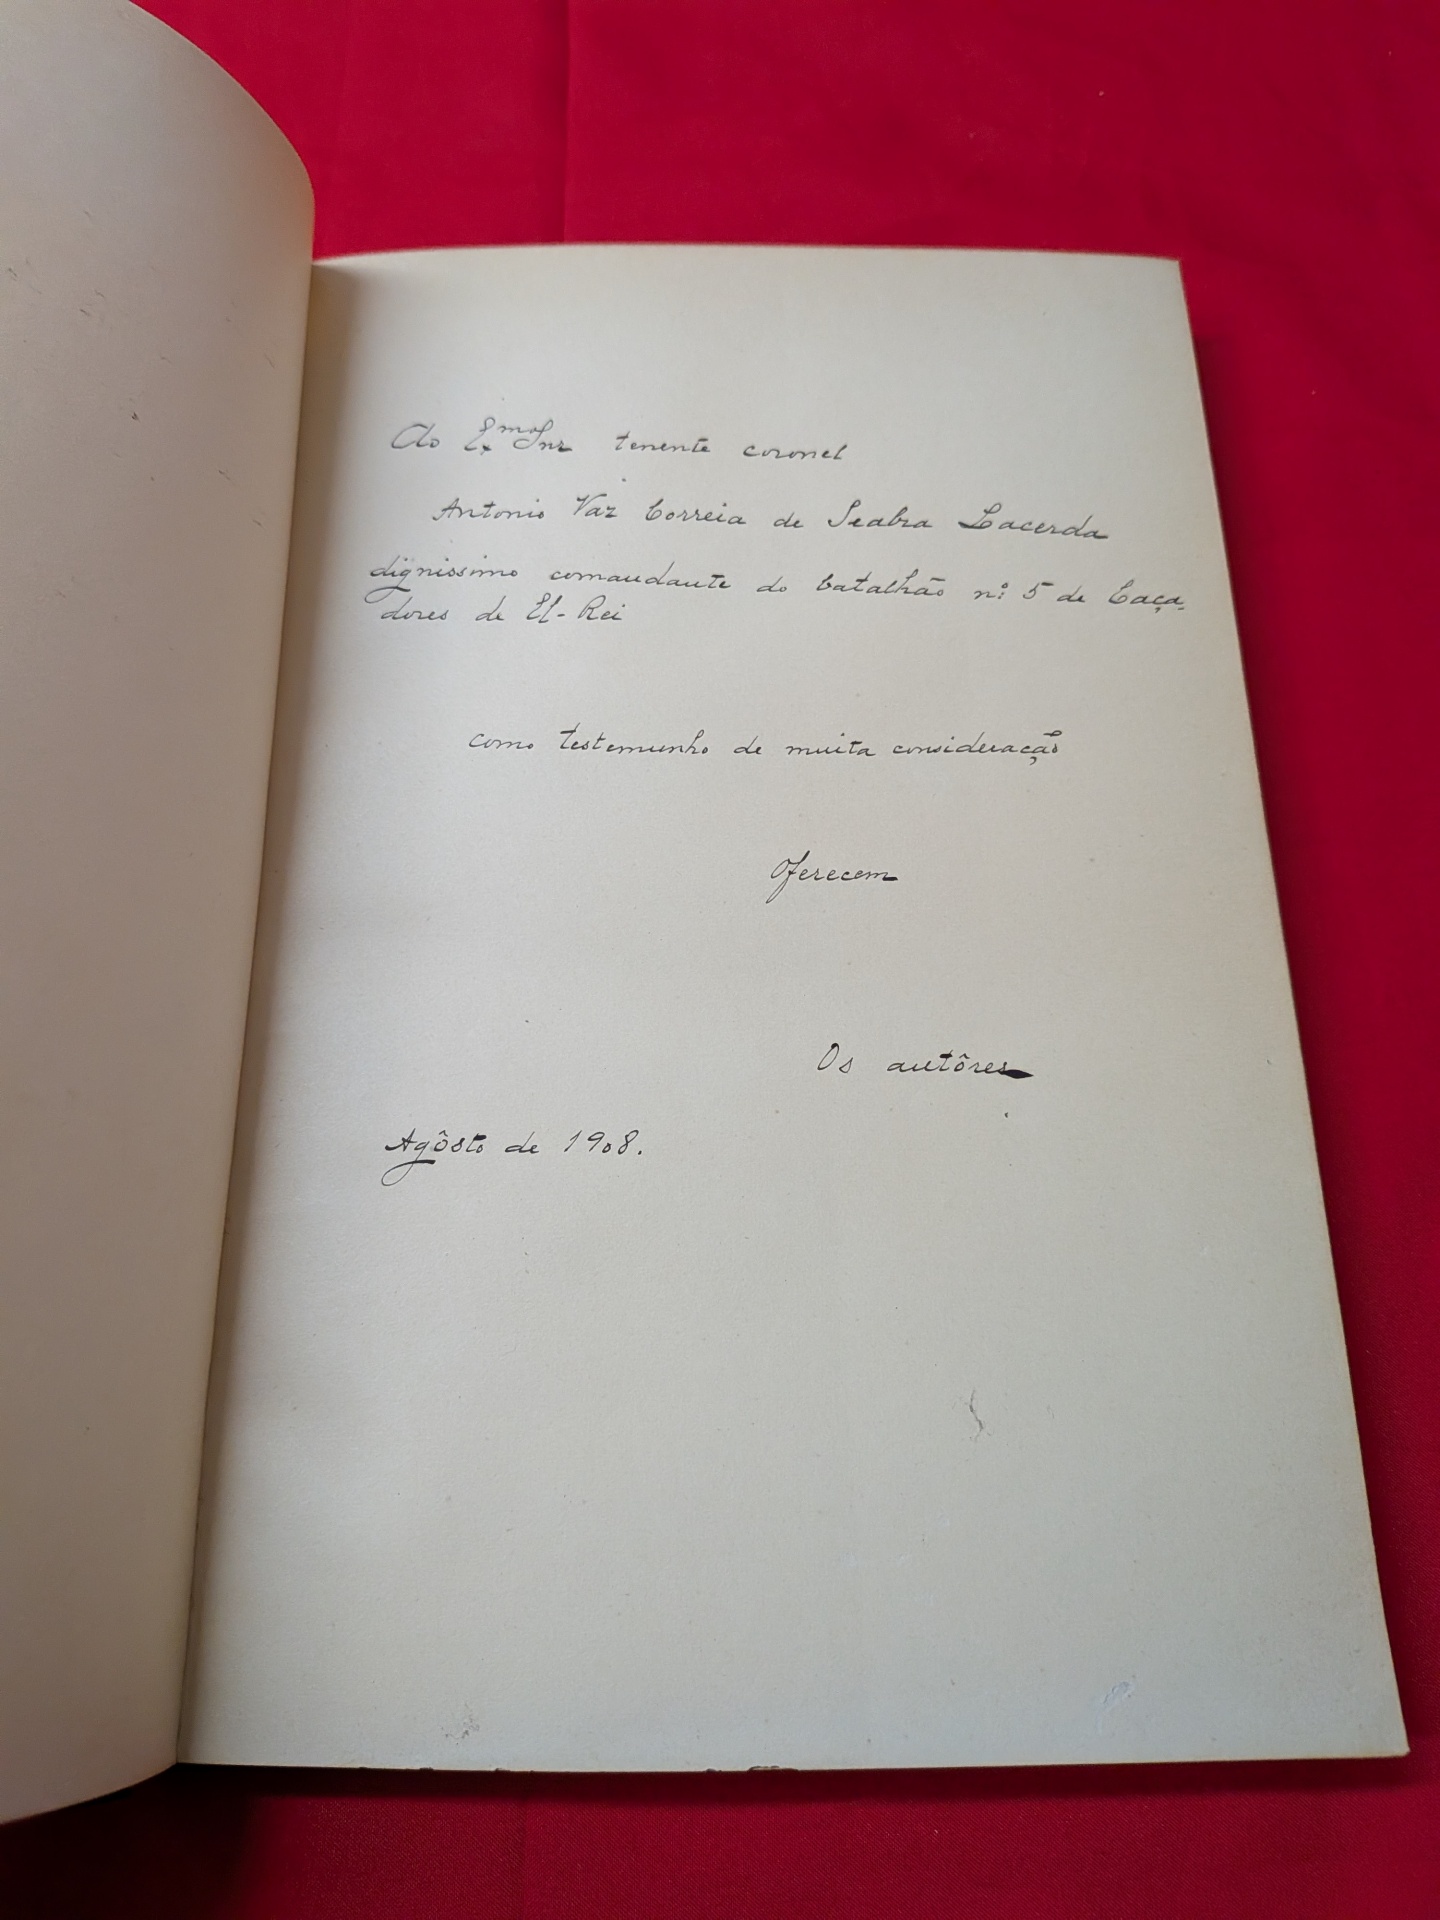 Ao Ex.mo Snr tenente coronel
Antonio Vaz Correia de Seabra Lacerda
dignissimo comandante do batalhão n.º 5 de Caça-
dores de El-Rei
como testemunho de muita consideração
Oferecem
Os autôres
Agôsto de 1908.